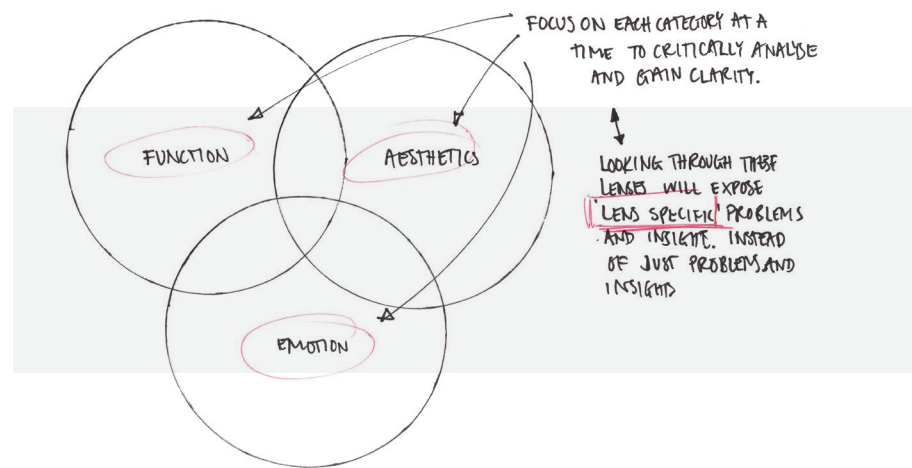 FOCUS ON EACH CATEGORY AT A
TIME TO CRITICALLY ANALYSE
AND GAIN CLARITY.
FUNCTION
AESTHETICS
EMOTION
LOOKING THROUGH THESE
LENSES WILL EXPOSE
'LENS SPECIFIC' PROBLEMS
AND INSIGHT. INSTEAD
OF JUST PROBLEMS AND
INSIGHTS